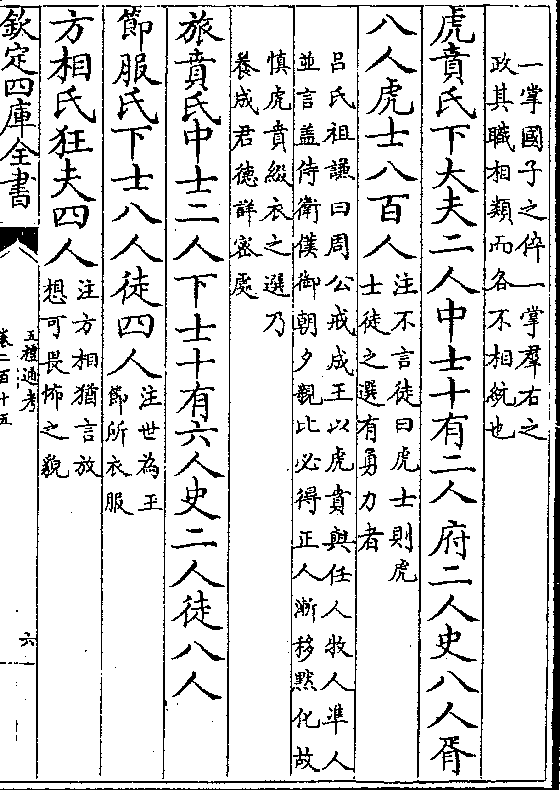 一掌國子之倅一掌羣右之
政其職相類而各不相統也
虎賁氏下大夫二人中士十有二人府二人史八人胥
八人虎士八百人
注不言徒曰虎士則虎
士徒之選有勇力者
呂氏祖謙曰周公戒成王以虎賁與任人牧人準人
並言盖侍衛僕御朝夕親比必得正人漸移黙化故
慎虎賁綴衣之選乃
養成君徳詳宻處
旅賁氏中士二人下士十有六人史二人徒八人
節服氏下士八人徒四人
注世為王
節所衣服
方相氏狂夫四人
注方相猶言放
想可畏怖之貌
欽定四庫全書
五禮通考
卷二百十五
六